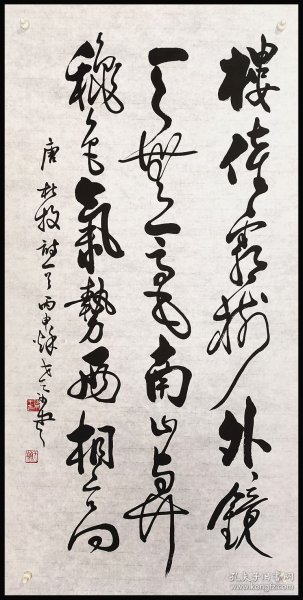 樓倚霜樹外鏡
天無一毫南山與
秋色氣勢兩相高
唐杜牧詩一首丙申秋
孔夫子旧书网